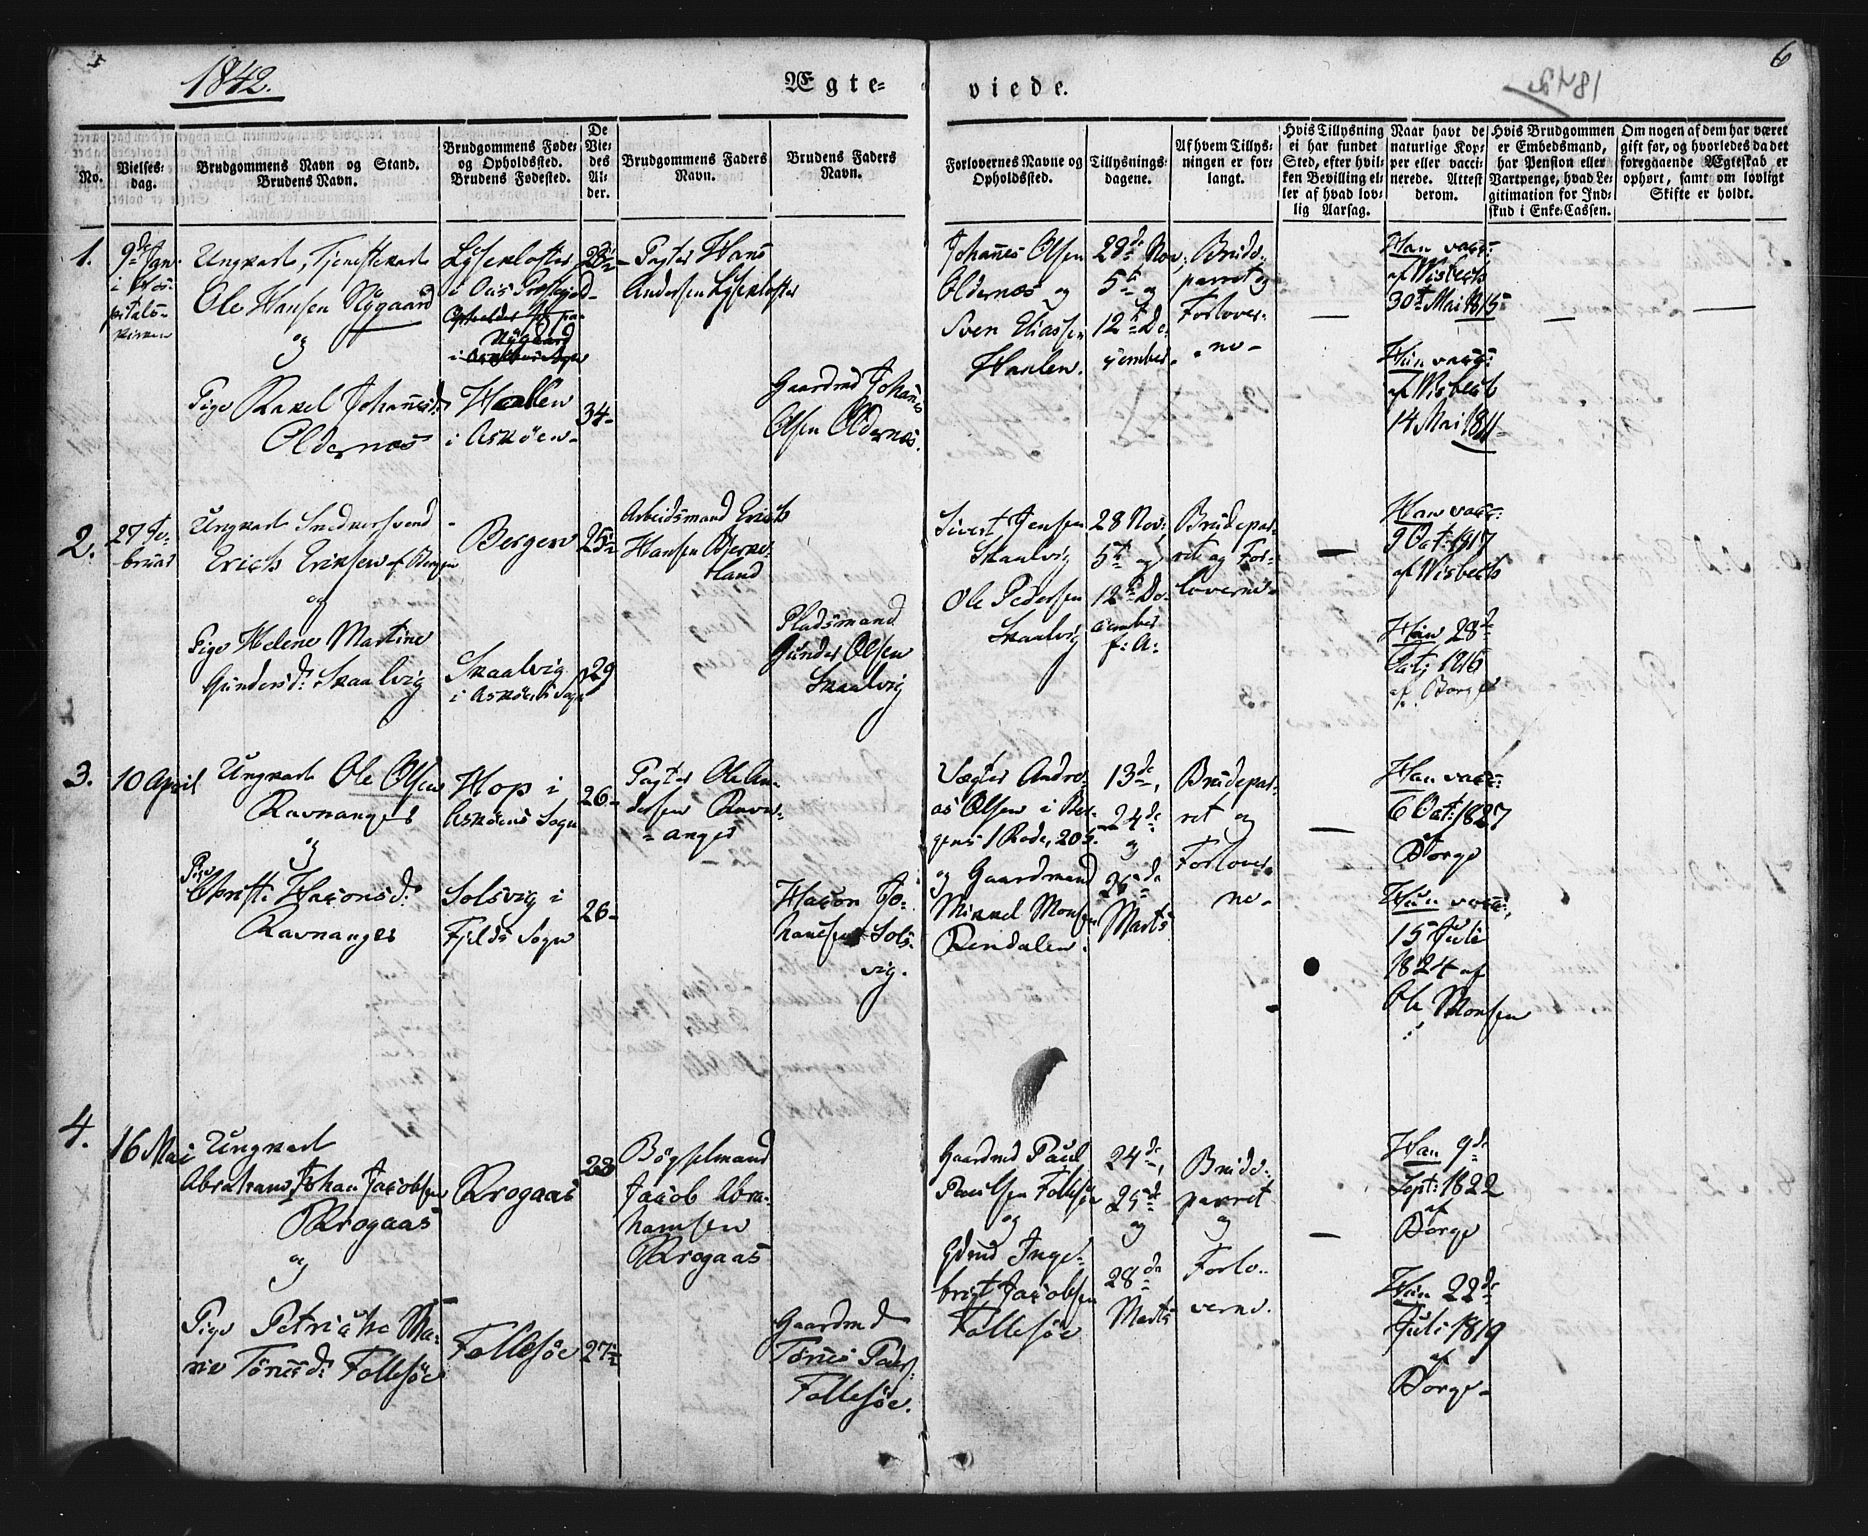 1842.
Ægte-
viede.
6
No.
Vielses-
dag.
Brudgommens Navn og Stand.
Brudens Navn.
Brudgommens Føde-
og Opholdssted.
Brudens Fødested.
De
Vie-
des
Al-
der.
Brudgommens Faders
Navn.
Brudens Faders
Navn.
Forlovernes Navne og
Opholdssted.
Tillysnings-
dagene.
Af hvem Tillys-
ningen er for-
langt.
Hvis Tillysning
ei har fundet
Sted, efter hvil-
ken Bevilling el-
ler af hvad lov-
lig Aarsag.
Naar havt de
naturlige Kop-
per eller vacci-
nerede. Attest
derom.
Hvis Brudgommen
er Embedsmand,
har Pension eller
Vartpenge, hvad Le-
gitimation for Ind-
skud i Enke-Cassen.
Om nogen af dem har været
gift før, og hvorledes da det
foregaaende Ægteskab er
ophørt, samt om lovligt
Skifte er holdt.
1.
9de Jan.
i Hos-
pitals-
kirken
Ungkarl, Tjenestekarl
Ole Hansen Nygaard
og
Pige Rakel Johannesd:
Oldernæs
Lysekloster
i Ous Præstegjeld
Nygaard
Hallen
i Askøen
28
34
Pagter Hans
Andersen Lysekloster
Gaardmd Johanes
Olsen Oldernæs.
Johannes Olsen
Oldernæs og
Sven Eliassen
Hanlen.
29de Nov,
5te og
12te De-
cember.
Brude-
parret og
Forlover-
ne
Han vacc:
af Wisbech
30te Mai 1815
Hun vacc:
af Wisbech
14 Mai 1811
2.
27 Fe-
bruar
Ungkarl Snedkersvend
Erich Eriksen af Bergen
og
Pige Helene Martine
Gundersd: Skaalvig
Bergen
Skaalvig
i Askøens Sogn
25
29
Arbeidsmand Erich
Hansen Bierke-
land
Pladsmand
Gunder Olsen
Skaalvig
Sivert Jensen
Skaalvig
Ole Pedersen
Skaalvig
28 Nov:
5te og
12te De-
cember
f: A:
Brudepar-
ret og For-
loverne
Han vacc:
9 Oct: 1817
af Wisbech
Hun 28de
Oct: 1816
af Borge
3.
10 April
Ungkarl Ole Olsen
Ravnanger
og
Pige
Christi Haconsd:
Ravnanger
Hop i
Askøens Sogn
Solsvig i
Fjelds Sogn
26
26
Pagter Ole An-
dersen Ravn-
anger
Hacon Jo-
hannesen Sols-
vig.
Vægter Andre-
as Olsen i Ber-
gens 1 Rode, 205.
og Gaardmand
Mikkel Monsen
Rendalen.
13de,
24de
og
28de
Marts
Brudepar-
ret og
Forlover-
ne
Han vacc:
6 Oct: 1827
Borge
Hun vacc:
15 Juli
1824 af
Ole Monsen
4.
16 Mai
Ungkarl
Abraham Johan Jacobsen
Krogaas
og
Pige Petrikke Ma-
rie Tørresd: Follesøe
Krogaas
Follesøe
28
27
Bøgselmand
Jacob Abra-
hamsen
Krogaas
Gaardmd
Follesøe.
Gaardmd Paul
Paulsen Follesøe
og
Gdmd Inge-
brigt Jacobsen
Follesøe
24de,
25de
og
28de
Marts
Brude-
parret
og
Forlo-
verne.
Han 9de
Sept: 1822
af
Borge
Hun 22de
Juli 1819
af
Borge